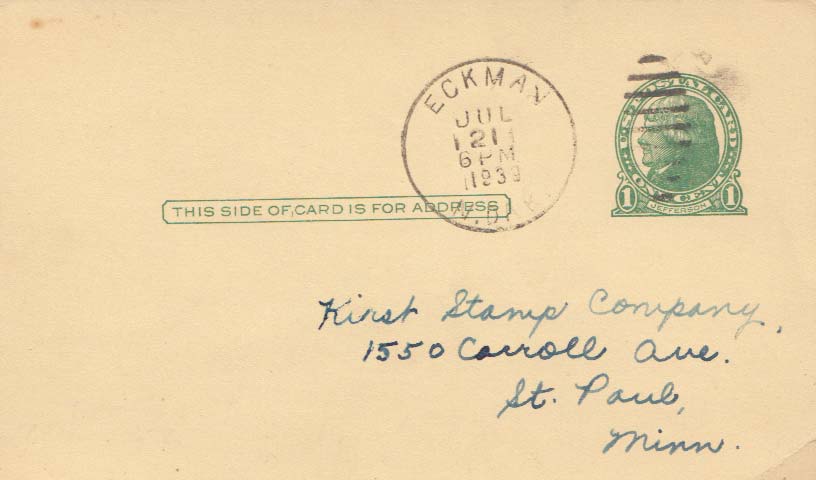 ECKMAN
JUL
21
6 PM
1939
N. DAK.
U.S. POSTAL CARD
1 ONE CENT 1
JEFFERSON
THIS SIDE OF CARD IS FOR ADDRESS
Kirst Stamp Company,
1550 Carroll Ave.
St. Paul,
Minn.